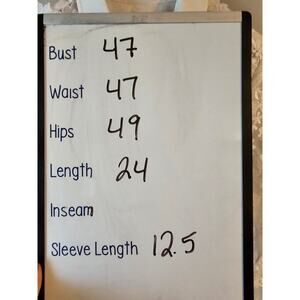 Bust 47
Waist 47
Hips 49
Length 24
Inseam
Sleeve Length 12.5